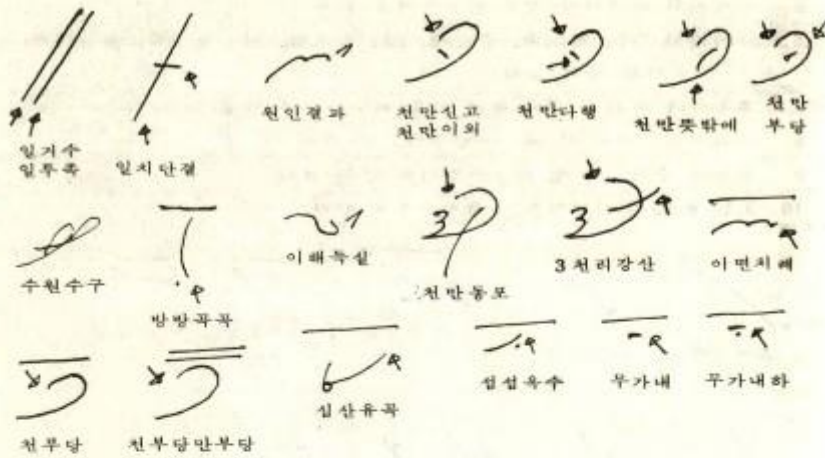 일거수
일투족
일치단결
원인결과
천만신고
천만이외
천만다행
천만뜻밖에
천만
부당
수원수구
방방곡곡
이해득실
3
천만동포
3
3천리강산
이면치레
천부당
천부당만부당
심산유곡
섬섬옥수
무가내
무가내하